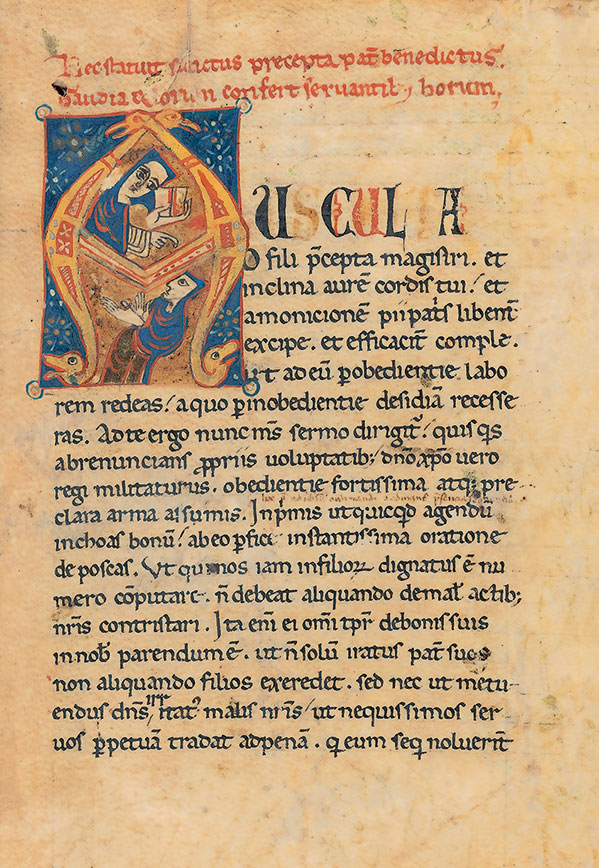 Hec statuit sanctus precepta pat̄ benedictus.
Gaudia confert servantib; horum.
AUSCULTA
O fili p̄cepta magistri. et
inclina aurē cordis tui / et
amonicionē pii pat̄s libent̄
excipe. et efficacit̄ comple.
ut ad eū p̱obedientie labo
rem redeas / a quo p̱inobedientie desidiā recesse
ras. Ad te ergo nunc m̄s sermo dirigit̄ / quis q̱s
abrenuncians p̱priis voluptatib; dn̄o xp̄o vero
regi militaturus. obedientie fortissima atq; pre
clara arma assumis. In p̱mis ut quicq̱d agendū
inchoas bonū / ab eo p̱fici instantissima oratione
deposcas. Ut qui nos iam in filioꝝ dignatus ē nu
mero cōputare. n̄ debeat aliquando de mal̄ actib;
nr̄is contristari. Ita em̄ ei om̄i tp̄r de bonis suis
in nob̄ parendum ē. ut n̄ solū iratus pat̄ suos
non aliquando filios exeredet. sed nec ut metu-
endus dn̄s irritat᾽ malis nr̄is / ut nequissimos ser
vos p̱petuā tradat ad penā. q̱ eum seq̱ noluerit̄